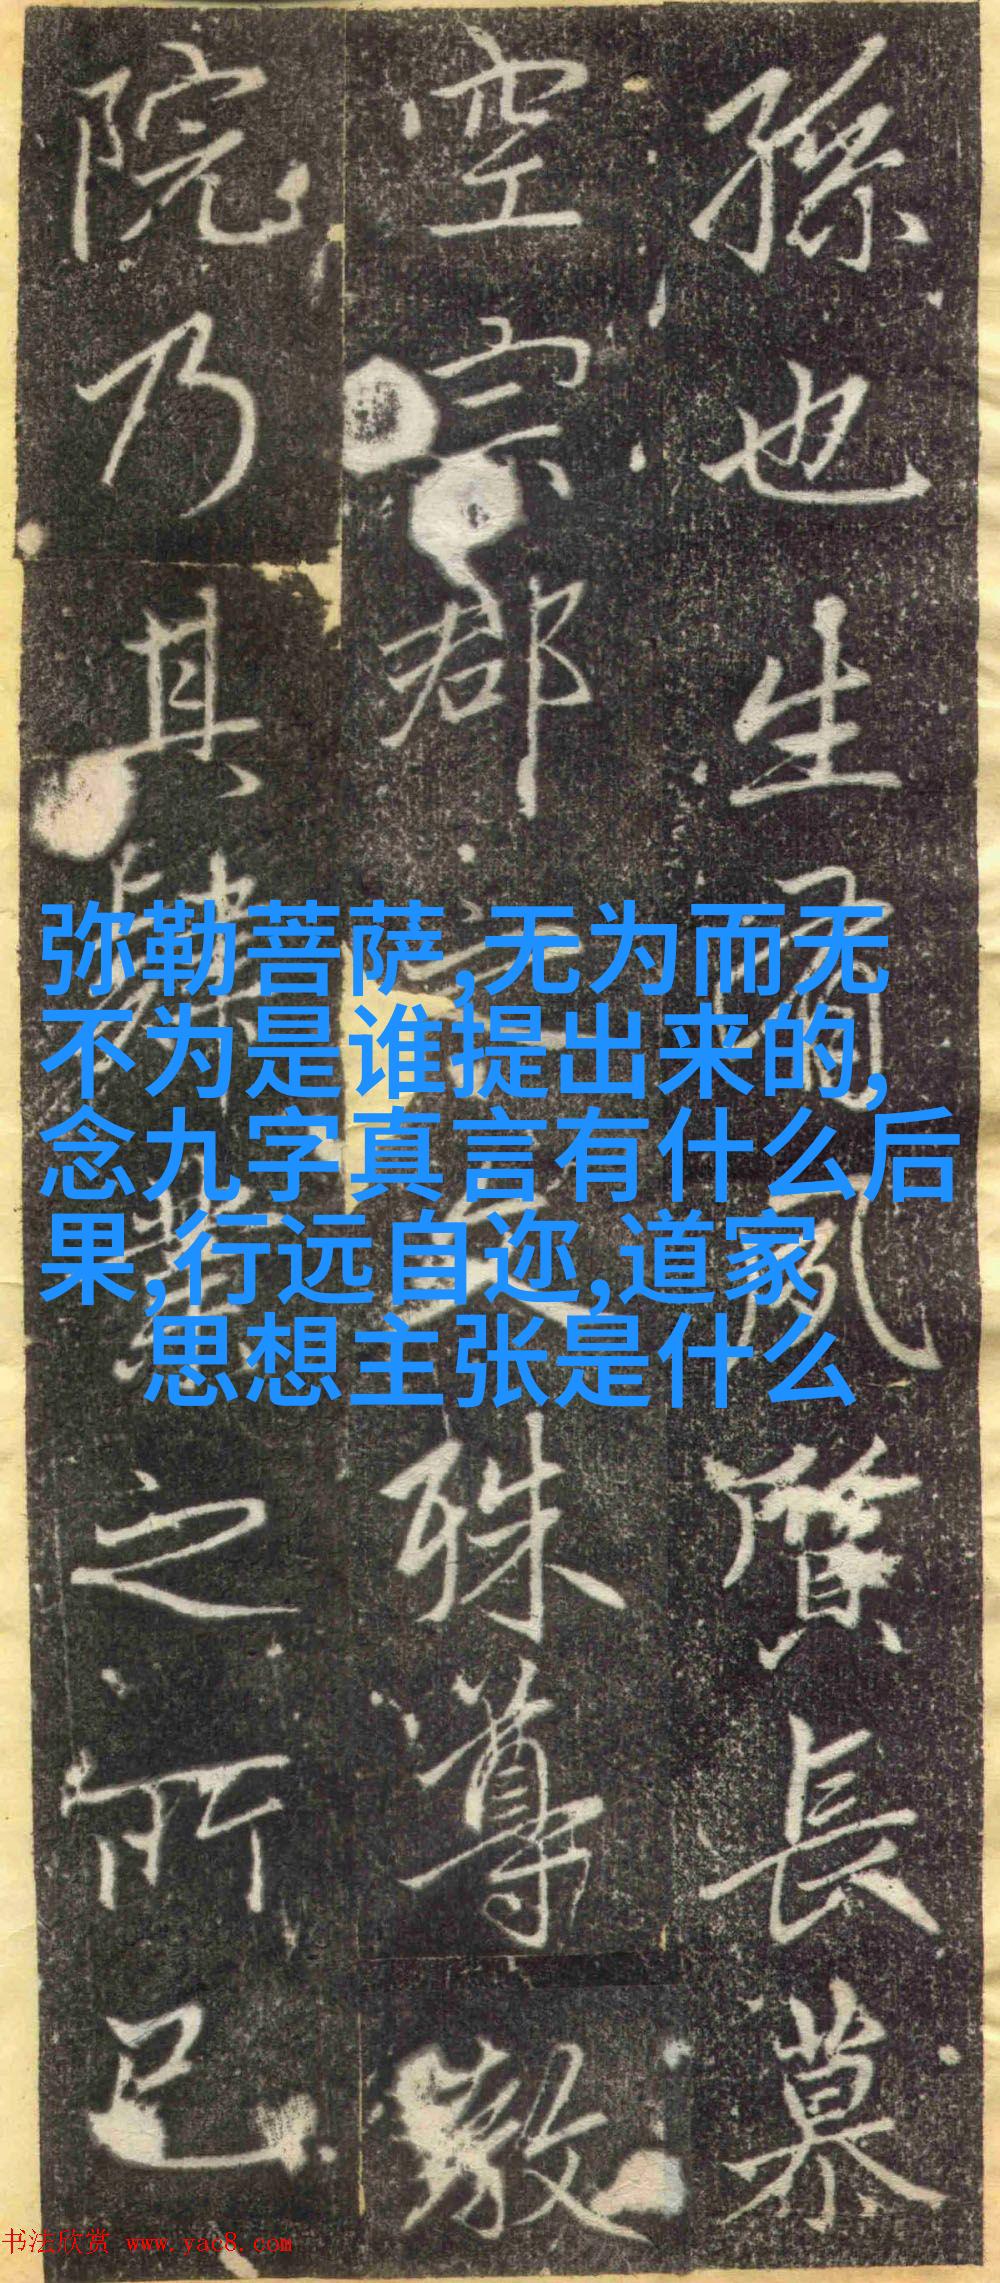 孫也生有夙質長慕
空宗郡之文殊尊敬
院乃其肄業之所已
弥勒菩萨,无为而无
不为是谁提出来的,
念九字真言有什么后
果,行远自迩,道家
思想主张是什么
书法欣赏 www.yac8.com